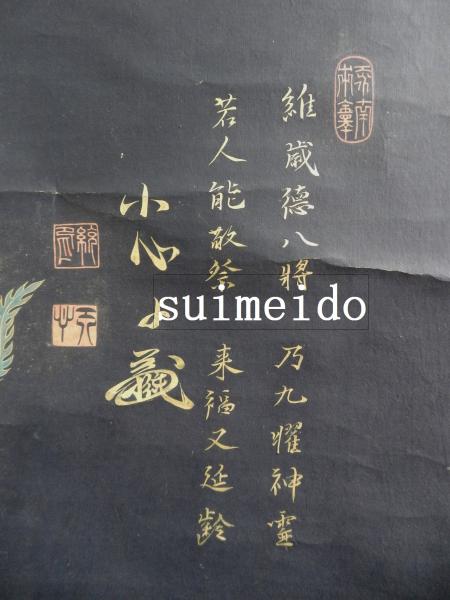 維歳德八將 乃九耀神靈
若人能敬祭 来福又延齡
小心
suimeido